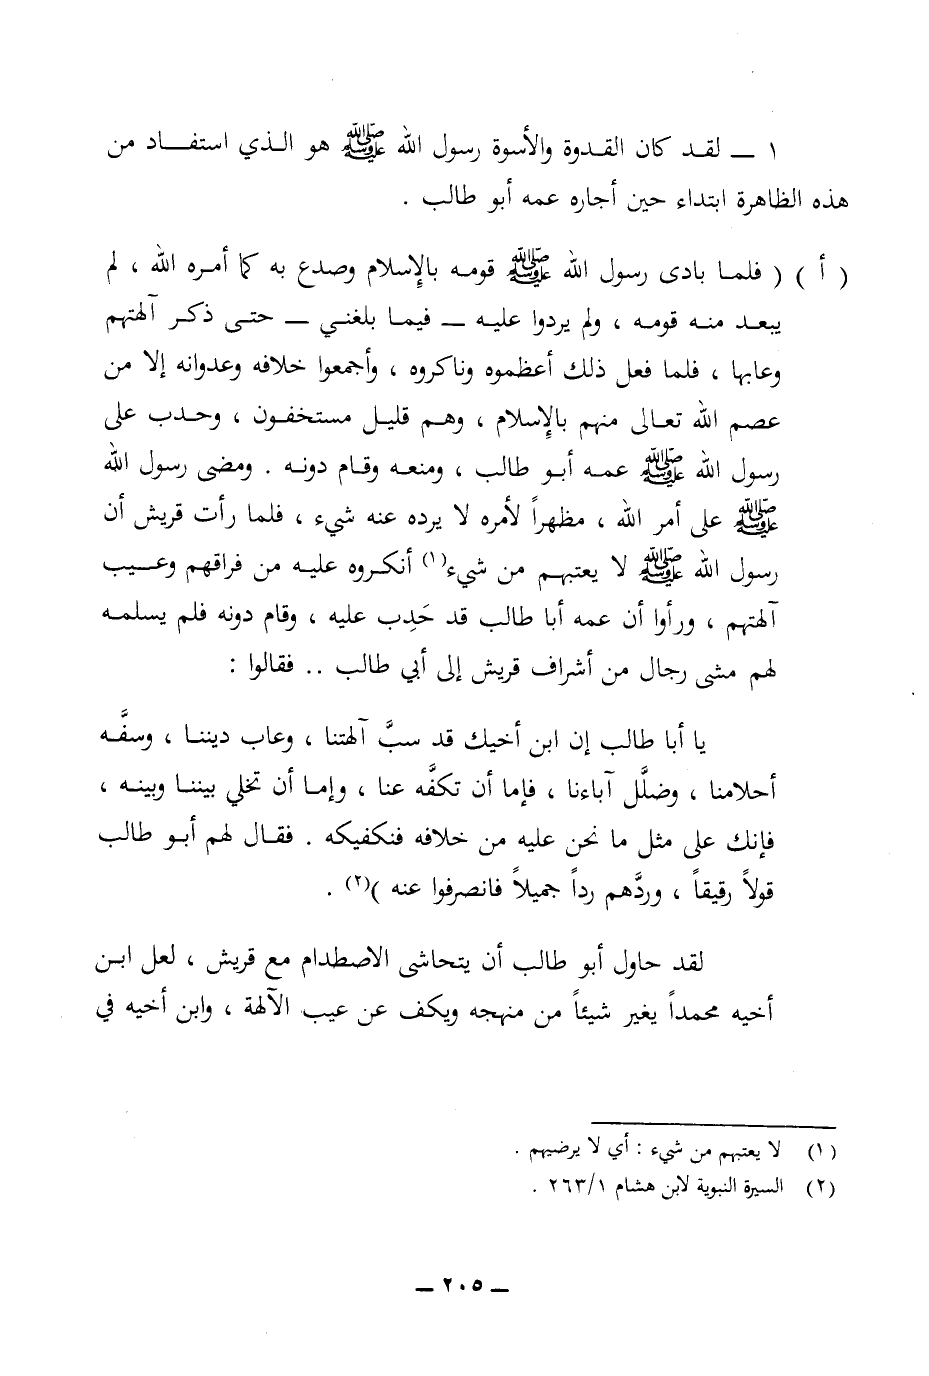 ١ ــ لقد كان القدوة والأسوة رسول الله ﷺ هو الذي استفاد من
هذه الظاهرة ابتداء حين أجاره عمه أبو طالب .
( أ ) ( فلما بادى رسول الله ﷺ قومه بالإسلام وصدع به كما أمره الله ، لم
يبعد منه قومه ، ولم يردوا عليه ــ فيما بلغني ــ حتى ذكر آلهتهم
وعابها ، فلما فعل ذلك أعظموه وناكروه ، وأجمعوا خلافه وعدوانه إلا من
عصم الله تعالى منهم بالإسلام ، وهم قليل مستخفون ، وحدب على
رسول الله ﷺ عمه أبو طالب ، ومنعه وقام دونه . ومضى رسول الله
ﷺ على أمر الله ، مظهراً لأمره لا يرده عنه شيء ، فلما رأت قريش أن
رسول الله ﷺ لا يعتبهم من شيء(١) أنكروه عليه من فراقهم وعيب
آلهتهم ، ورأوا أن عمه أبا طالب قد حَدِب عليه ، وقام دونه فلم يسلمه
لهم مشى رجال من أشراف قريش إلى أبي طالب .. فقالوا :
يا أبا طالب إن ابن أخيك قد سبَّ آلهتنا ، وعاب ديننا ، وسفَّه
أحلامنا ، وضلَّل آباءنا ، فإما أن تكفَّه عنا ، وإما أن تخلي بيننا وبينه ،
فإنك على مثل ما نحن عليه من خلافه فنكفيكه . فقال لهم أبو طالب
قولاً رقيقاً ، وردَّهم رداً جميلاً فانصرفوا عنه )(٢) .
لقد حاول أبو طالب أن يتحاشى الاصطدام مع قريش ، لعل ابن
أخيه محمداً يغير شيئاً من منهجه ويكف عن عيب الآلهة ، وابن أخيه في
(١) لا يعتبهم من شيء : أي لا يرضيهم .
(٢) السيرة النبوية لابن هشام ٢٦٣/١ .
ــ ٢٠٥ ــ